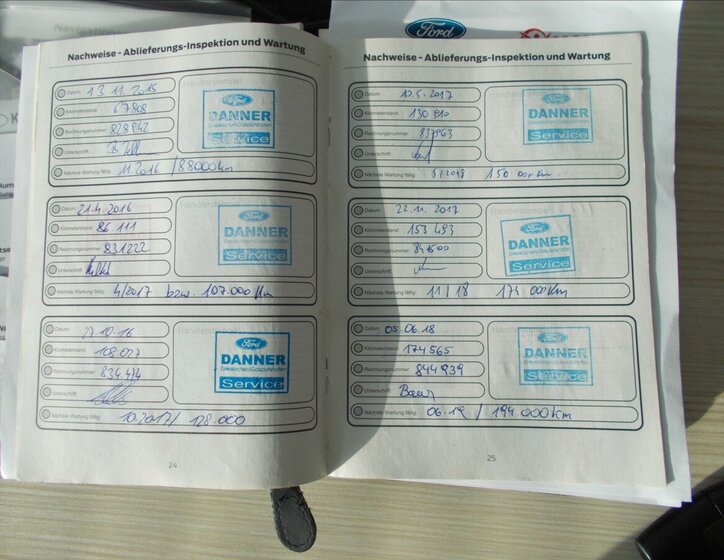 Ford
Nachweise - Ablieferungs-Inspektion und Wartung
Datum: 13.11.2015
Kilometerstand: 67808
Rechnungsnummer: 828942
Unterschrift:
Nächste Wartung fällig: 11.2016 / 88000 Km
Händlerstempel
Ford
DANNER
Service
Datum: 21.4.2016
Kilometerstand: 86 111
Rechnungsnummer: 831222
Unterschrift:
Nächste Wartung fällig: 4/2017 bzw 107.000 Km
Händlerstempel
Ford
DANNER
Service
Datum: 27.10.16
Kilometerstand: 108.027
Rechnungsnummer: 834.474
Unterschrift:
Nächste Wartung fällig: 10.2017 / 128.000
Händlerstempel
Ford
DANNER
Service
24
Nachweise - Ablieferungs-Inspektion und Wartung
Datum: 10.5.2017
Kilometerstand: 130 810
Rechnungsnummer: 837963
Unterschrift:
Nächste Wartung fällig: 5/2018 150 000 Km
Ford
DANNER
Service
Datum: 22.11.2017
Kilometerstand: 153 493
Rechnungsnummer:
Unterschrift:
Nächste Wartung fällig: 11/18 174 000 Km
Händlerstempel
Ford
DANNER
Service
Datum: 05.06.18
Kilometerstand: 174 565
Rechnungsnummer: 844939
Unterschrift:
Nächste Wartung fällig: 06.19 / 194 000 Km
Händlerstempel
Ford
DANNER
Service
25